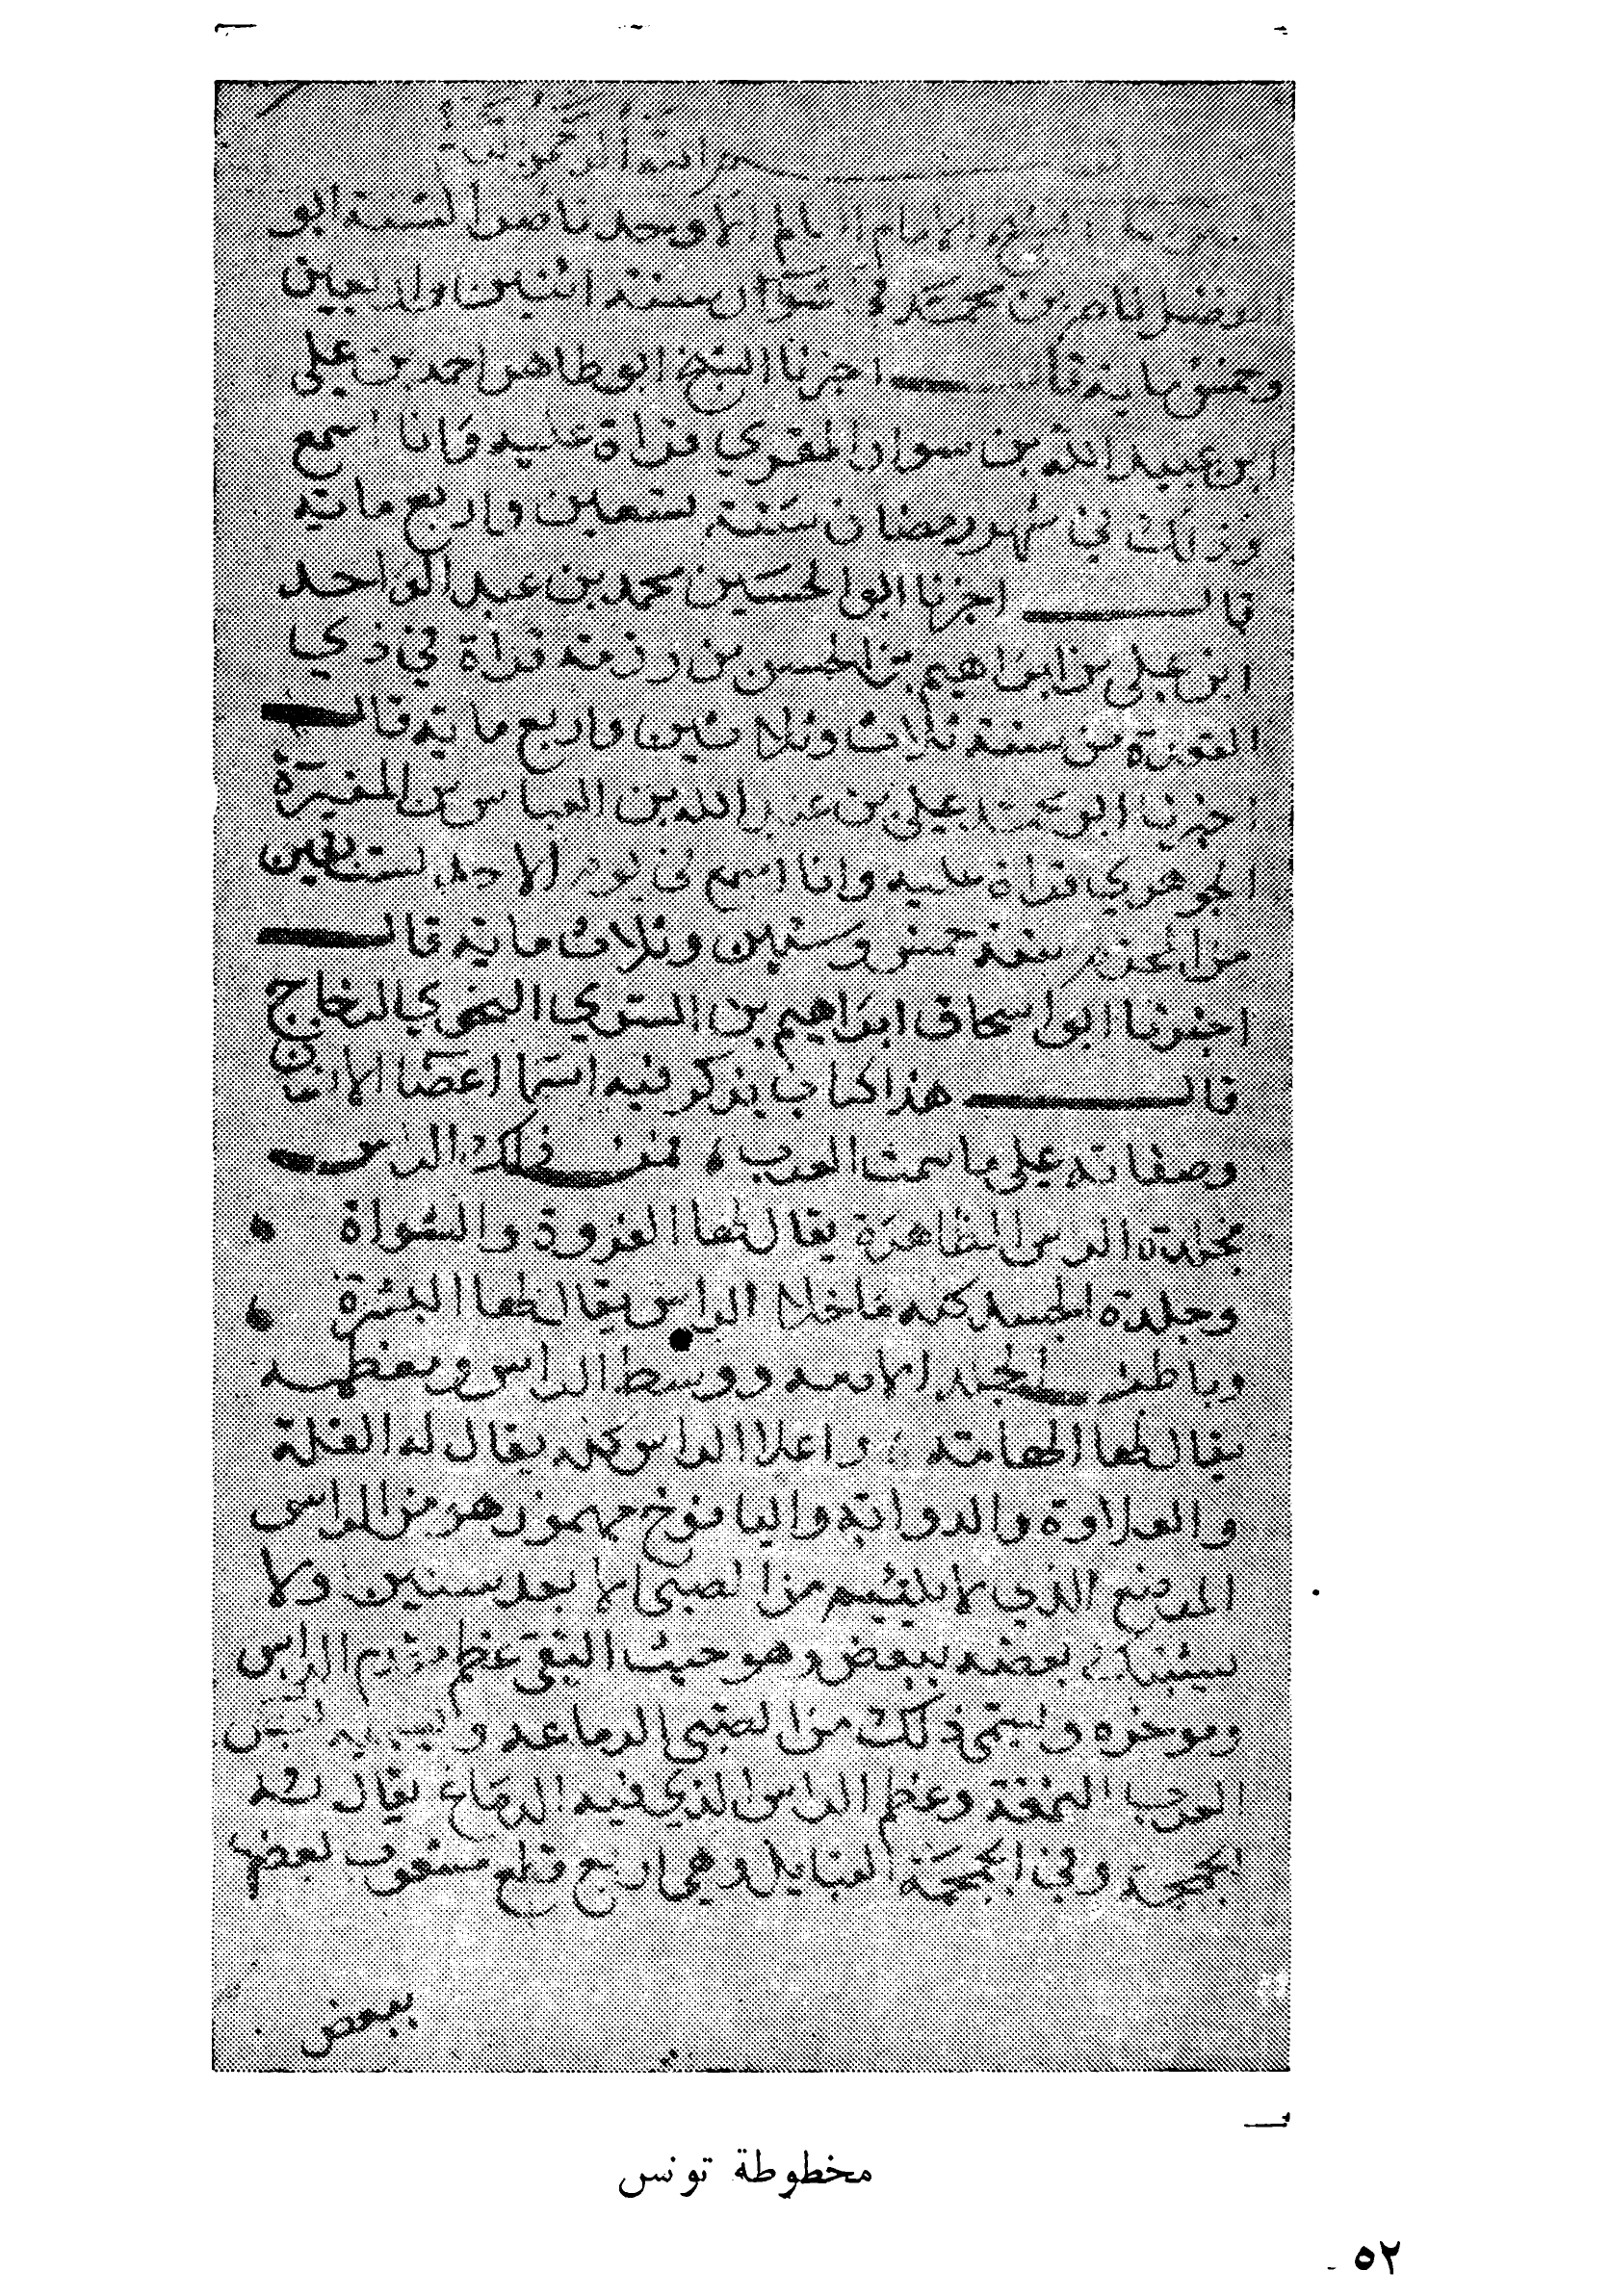 بسم الله الرحمن الرحيم
الشيخ الامام الاوحد ناصر السنة ابو
الفضل ناصر بن محمد في شوال سنة اثنين واربعين
وخمس ماية قال اخبرنا الشيخ ابو طاهر احمد بن علي
ابن عبيد الله بن سوار المقري قراة عليه وانا اسمع
وذلك في شهر رمضان سنة تسعين واربع ماية
قال اخبرنا ابو الحسين محمد بن عبد الواحد
ابن علي بن ابراهيم بن الحسن بن رزمة قراة في ذي
القعدة من سنة ثلاث وثلاثين واربع ماية قال
اخبرنا ابو محمد علي بن عبد الله بن العباس بن المغيرة
الجوهري قراة عليه وانا اسمع في يوم الاحد
من المحرم سنة خمس وستين وثلاث ماية قال
اخبرنا ابو اسحاق ابراهيم بن السري النحوي الزجاج
قال هذا كتاب يذكر فيه اسما اعضا الانسان
وصفاته على ما سمت العرب فمن ذلك الراس
فجلدة الراس الظاهرة يقال لها الفروة والشواة
وجلدة الجسد كله ما خلا الراس يقال لها البشرة
وباطن الجلد الادمه ووسط الراس ومعظمه
يقال لها الهامة واعلا الراس كله يقال له القلة
والعلاوة والدوابة واليافوخ مهموز هو من الراس
الموضع الذي لا يلتيم من الصبي الا بعد سنين ولا
يشتبك بعضه ببعض وهو حيث التقى عظم مقدم الراس
وموخره ويسمى ذلك من الصبي الرماعة وبعض
العرب النمغة وعظم الراس الذي فيه الدماغ يقال له
الجمجمة وفي الجمجمة القبايل وهي اربع قطع مشعوب بعضها
ببعض
مخطوطة تونس
٥٢